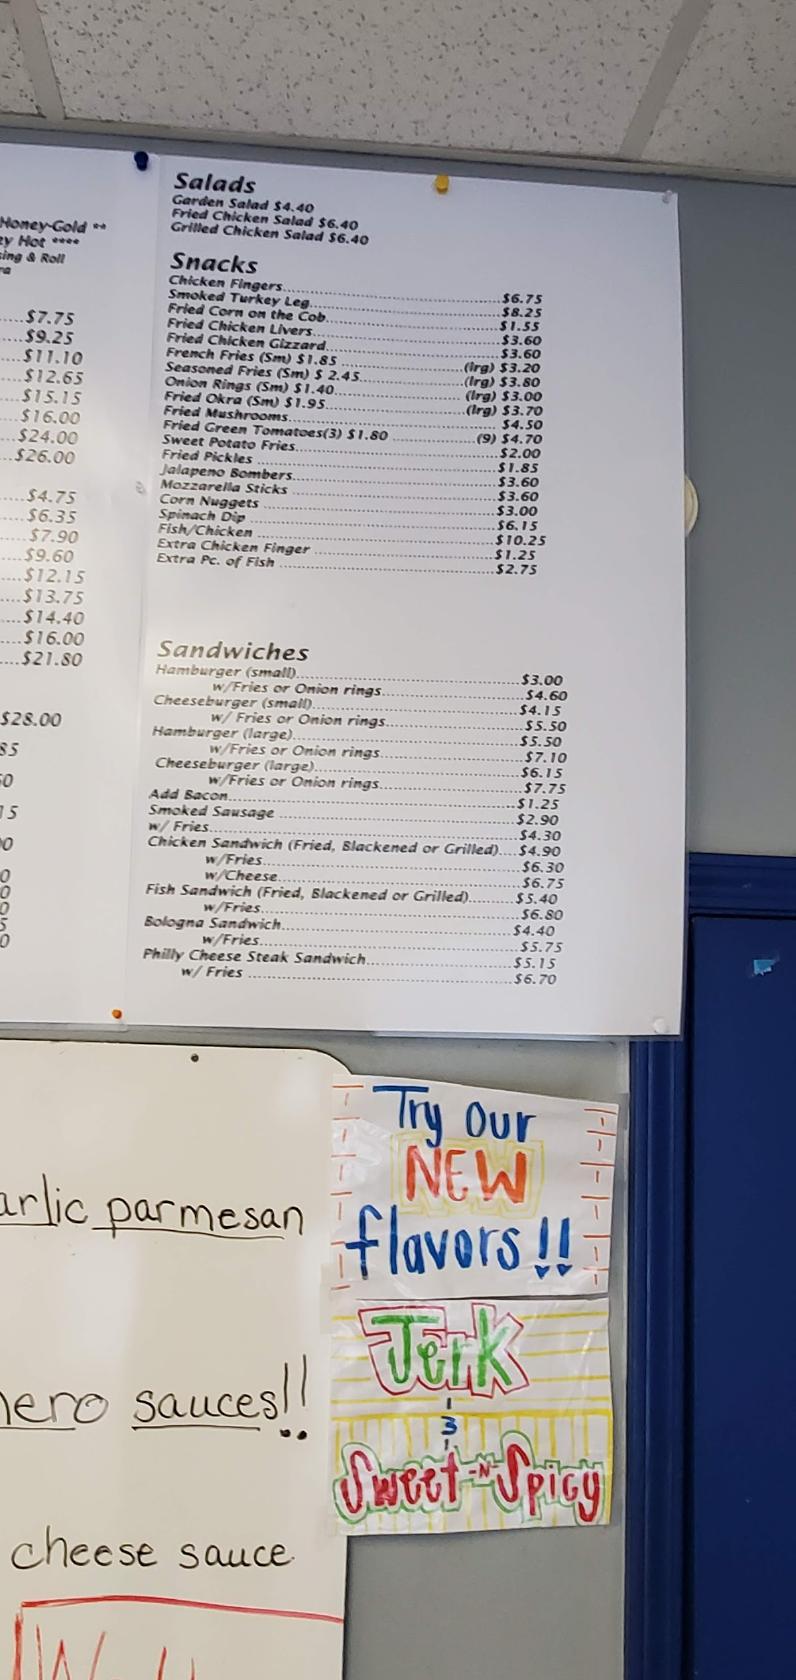 Honey-Gold **
Hot ****
& Roll
$7.75
$9.25
$11.10
$12.65
$15.15
$16.00
$24.00
$26.00
$4.75
$6.35
$7.90
$9.60
$12.15
$13.75
$14.40
$16.00
$21.80
$28.00
Salads
Garden Salad $4.40
Fried Chicken Salad $6.40
Grilled Chicken Salad $6.40
Snacks
Chicken Fingers $6.75
Smoked Turkey Leg $8.25
Fried Corn on the Cob $1.55
Fried Chicken Livers $3.60
Fried Chicken Gizzard $3.60
French Fries (Sm) $1.85 (lrg) $3.20
Seasoned Fries (Sm) $ 2.45 (lrg) $3.80
Onion Rings (Sm) $1.40 (lrg) $3.00
Fried Okra (Sm) $1.95 (lrg) $3.70
Fried Mushrooms $4.50
Fried Green Tomatoes(3) $1.80 (9) $4.70
Sweet Potato Fries $2.00
Fried Pickles $1.85
Jalapeno Bombers $3.60
Mozzarella Sticks $3.60
Corn Nuggets $3.00
Spinach Dip $6.15
Fish/Chicken $10.25
Extra Chicken Finger $1.25
Extra Pc. of Fish $2.75
Sandwiches
Hamburger (small) $3.00
w/Fries or Onion rings $4.60
Cheeseburger (small) $4.15
w/ Fries or Onion rings $5.50
Hamburger (large) $5.50
w/Fries or Onion rings $7.10
Cheeseburger (large) $6.15
w/Fries or Onion rings $7.75
Add Bacon $1.25
Smoked Sausage $2.90
w/ Fries $4.30
Chicken Sandwich (Fried, Blackened or Grilled) $4.90
w/Fries $6.30
w/Cheese $6.75
Fish Sandwich (Fried, Blackened or Grilled) $5.40
w/Fries $6.80
Bologna Sandwich $4.40
w/Fries $5.75
Philly Cheese Steak Sandwich $5.15
w/ Fries $6.70
parmesan
sauces!!
cheese sauce
Try our
NEW
flavors!!
Jerk
3
Sweet-N-Spicy